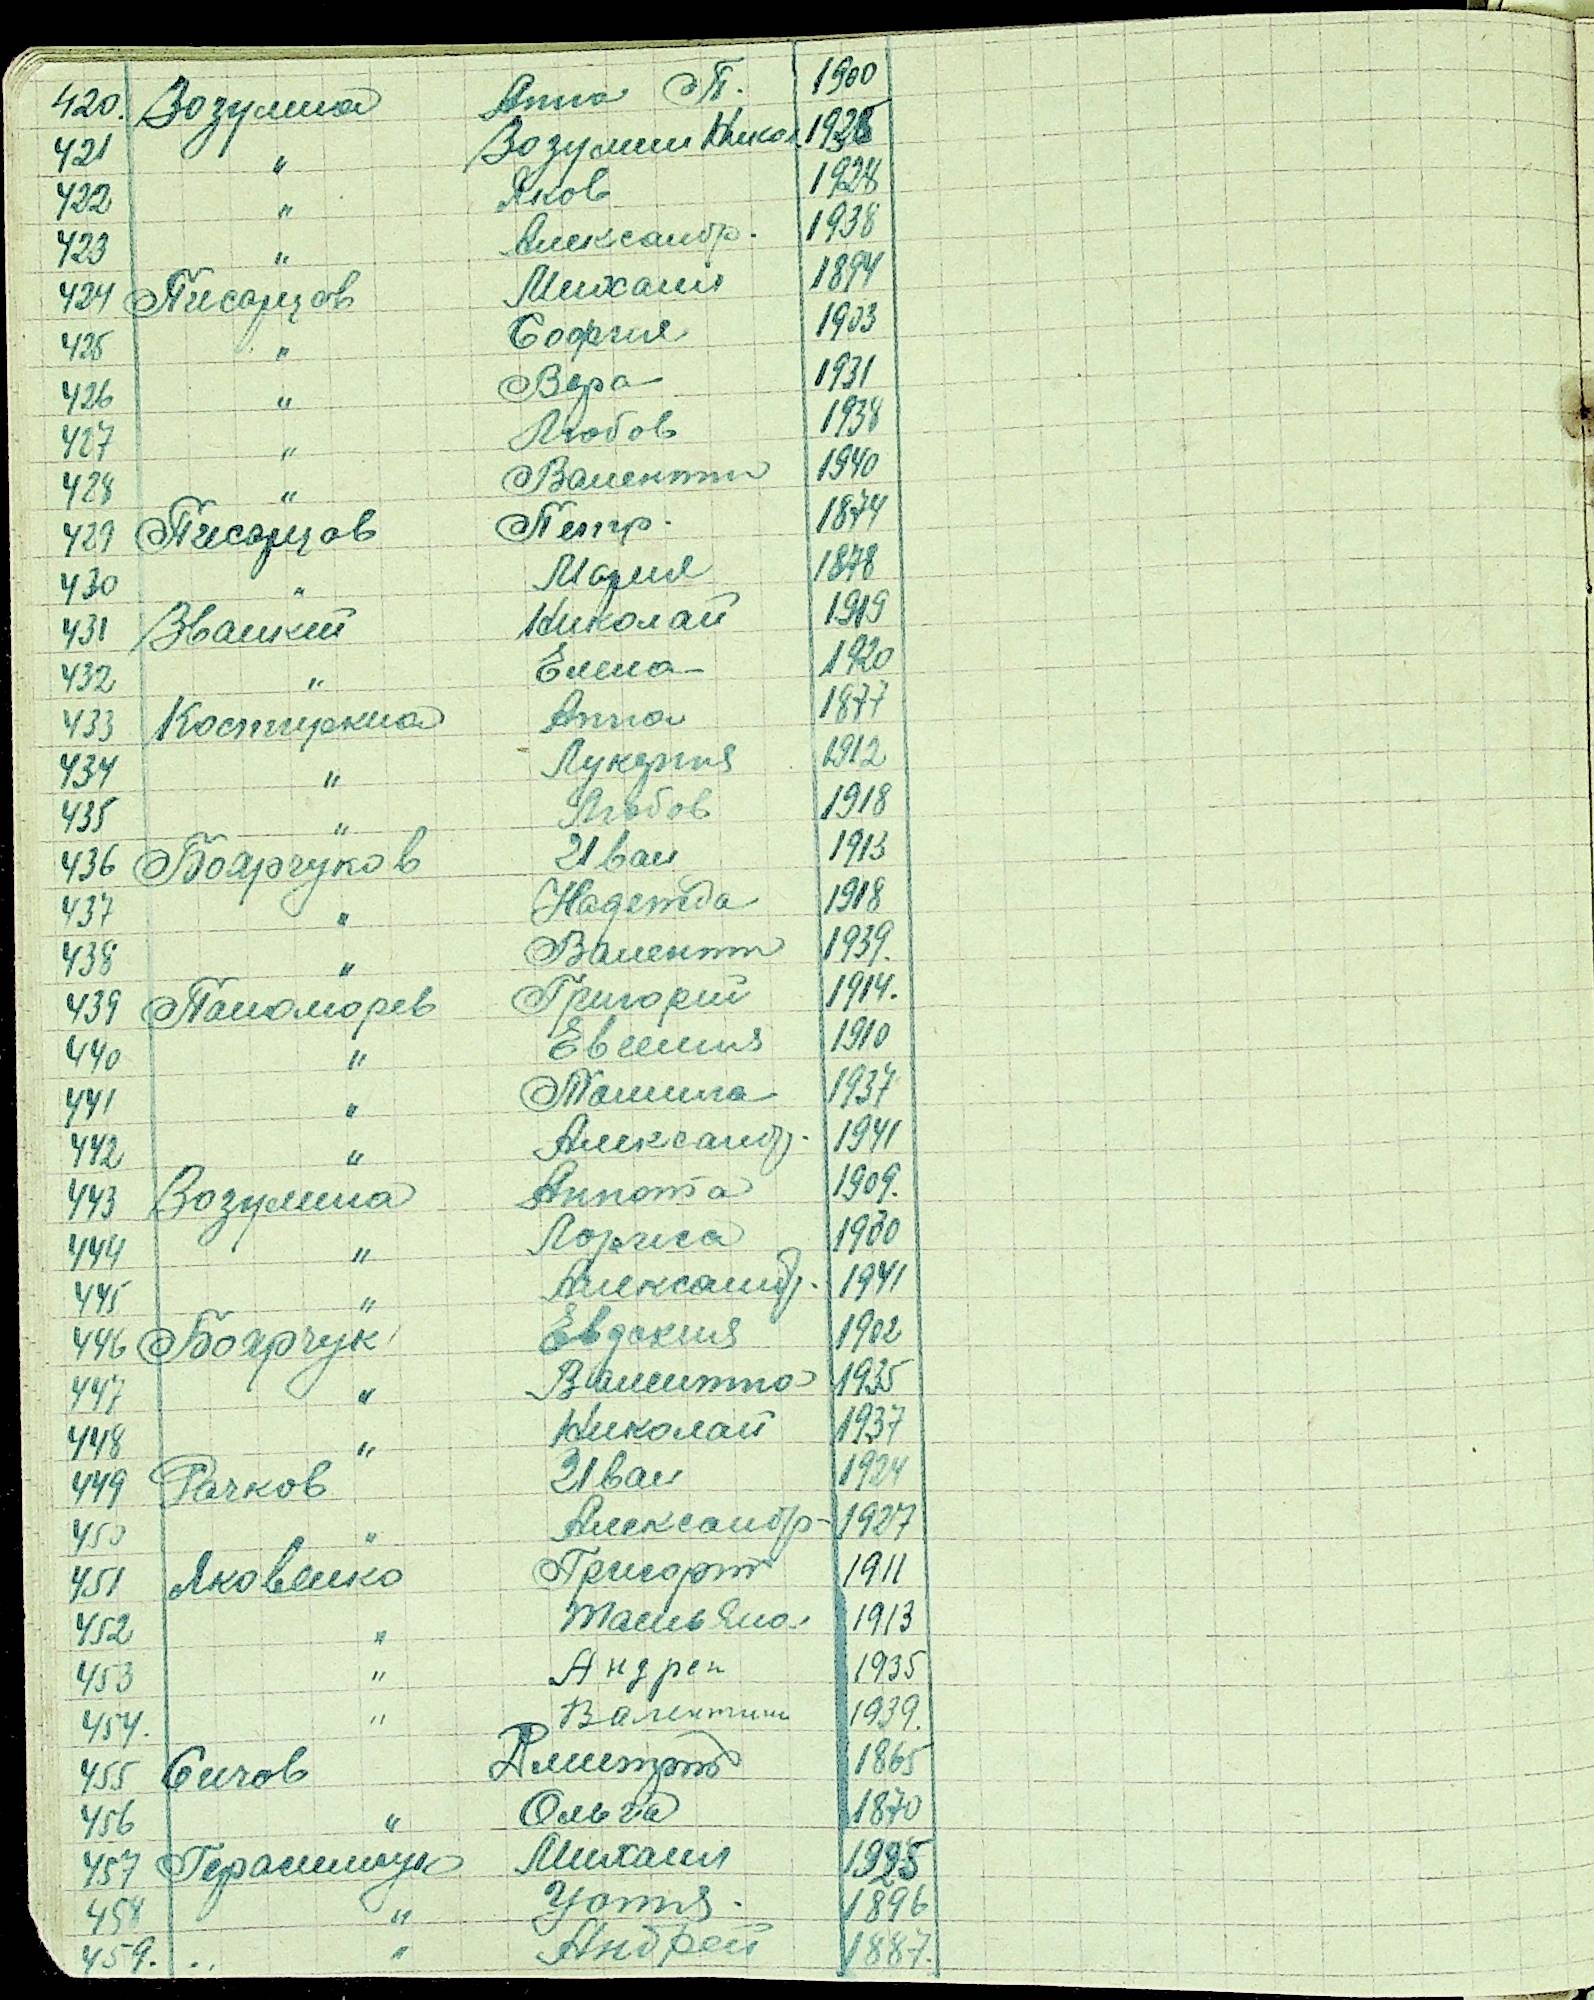 420. Возулина Анна П. 1900
421 " Возулин Никол 1928
422 " Яков 1928
423 " Александр. 1938
424 Писарцов Михаил 1894
425 " София 1903
426 " Вера 1931
427 " Любов 1938
428 " Валентин 1940
429 Писарцов Петр. 1874
430 " Мария 1878
431 Званкий Николай 1919
432 " Елена 1920
433 Костиркина Анна 1877
434 " Лукерия 1912
435 " Любов 1918
436 Боярчуков Иван 1913
437 " Надежда 1918
438 " Валентин 1939.
439 Паноморев Григорий 1914.
440 " Евгения 1910
441 " 1937
442 " Александр. 1941
443 Возулина Аннота 1909.
444 " Лориса 1930
445 " Александр. 1941
446 Боярчук Евдокия 1902
447 " Валентина 1935
448 " Николай 1937
449 Рачков Иван 1924
450 " Александр 1927
451 Яковенко Григорий 1911
452 " Татьяна 1913
453 " Андреи 1935
454. " Валентин 1939.
455 Сичов Дмитрий 1865
456 " Ольга 1870
457 Михаил
458 " 1896
459. " Андрей 1887.